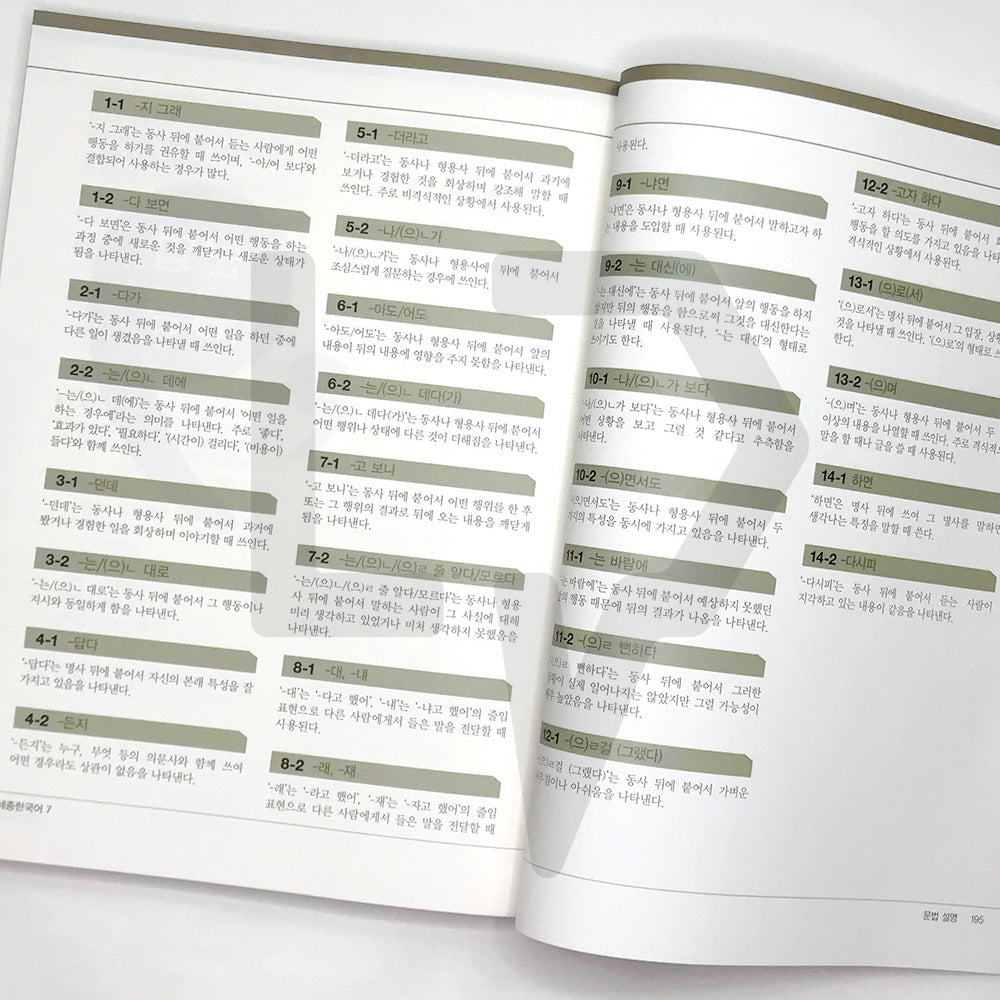 1-1 -지 그래
'-지 그래'는 동사 뒤에 붙어서 듣는 사람에게 어떤
행동을 하기를 권유할 때 쓰이며, '-아/어 보다'와
결합되어 사용하는 경우가 많다.
1-2 -다 보면
'-다 보면'은 동사 뒤에 붙어서 어떤 행동을 하는
과정 중에 새로운 것을 깨닫거나 새로운 상태가
됨을 나타낸다.
2-1 -다가
'-다가'는 동사 뒤에 붙어서 어떤 일을 하던 중에
다른 일이 생겼음을 나타낼 때 쓰인다.
2-2 -는/(으)ㄴ 데에
'-는/(으)ㄴ 데(에)'는 동사 뒤에 붙어서 '어떤 일을
하는 경우에'라는 의미를 나타낸다. 주로 '좋다',
'효과가 있다', '필요하다', '(시간이) 걸리다', '(비용이)
들다'와 함께 쓰인다.
3-1 -던데
'-던데'는 동사나 형용사 뒤에 붙어서 과거에
봤거나 경험한 일을 회상하며 이야기할 때 쓰인다.
3-2 -는/(으)ㄴ 대로
'-는/(으)ㄴ 대로'는 동사 뒤에 붙어서 그 행동이나
지시와 동일하게 함을 나타낸다.
4-1 -답다
'-답다'는 명사 뒤에 붙어서 자신의 본래 특성을 잘
가지고 있음을 나타낸다.
4-2 -든지
'-든지'는 누구, 무엇 등의 의문사와 함께 쓰여
어떤 경우라도 상관이 없음을 나타낸다.
세종한국어 7
5-1 -더라고
'-더라고'는 동사나 형용사 뒤에 붙어서 과거에
보거나 경험한 것을 회상하며 강조해 말할 때
쓰인다. 주로 비격식적인 상황에서 사용된다.
5-2 -나/(으)ㄴ가
'-나/(으)ㄴ가'는 동사나 형용사에 뒤에 붙어서
조심스럽게 질문하는 경우에 쓰인다.
6-1 -아도/어도
'-아도/어도'는 동사나 형용사 뒤에 붙어서 앞의
내용이 뒤의 내용에 영향을 주지 못함을 나타낸다.
6-2 -는/(으)ㄴ 데다(가)
'-는/(으)ㄴ 데다(가)'는 동사나 형용사 뒤에 붙어서
어떤 행위나 상태에 다른 것이 더해짐을 나타낸다.
7-1 -고 보니
'-고 보니'는 동사 뒤에 붙어서 어떤 행위를 한 후
또는 그 행위의 결과로 뒤에 오는 내용을 깨닫게
됨을 나타낸다.
7-2 -는/(으)ㄴ/(으)ㄹ 줄 알다/모르다
'-는/(으)ㄴ/(으)ㄹ 줄 알다/모르다'는 동사나 형용
사 뒤에 붙어서 말하는 사람이 그 사실에 대해
미리 생각하고 있었거나 미처 생각하지 못했음을
나타낸다.
8-1 -대, -냬
'-대'는 '-다고 했어', '-냬'는 '-냐고 했어'의 줄임
표현으로 다른 사람에게서 들은 말을 전달할 때
사용된다.
8-2 -래, -재
'-래'는 '-라고 했어', '-재'는 '-자고 했어'의 줄임
표현으로 다른 사람에게서 들은 말을 전달할 때
사용된다.
9-1 -냐면
'-냐면'은 동사나 형용사 뒤에 붙어서 말하고자 하
는 내용을 도입할 때 사용된다.
9-2 -는 대신(에)
'-는 대신에'는 동사 뒤에 붙어서 앞의 행동을 하지
않지만 뒤의 행동을 함으로써 그것을 대신한다는
것을 나타낼 때 사용된다. '-는 대신'의 형태로
쓰이기도 한다.
10-1 -나/(으)ㄴ가 보다
-나/(으)ㄴ가 보다'는 동사나 형용사 뒤에 붙어서
어떤 상황을 보고 그럴 것 같다고 추측함을
나타낸다.
10-2 -(으)면서도
-(으)면서도'는 동사나 형용사 뒤에 붙어서 두
가지의 특성을 동시에 가지고 있음을 나타낸다.
11-1 -는 바람에
'-는 바람에'는 동사 뒤에 붙어서 예상하지 못했던
앞의 행동 때문에 뒤의 결과가 나옴을 나타낸다.
11-2 -(으)ㄹ 뻔하다
-(으)ㄹ 뻔하다'는 동사 뒤에 붙어서 그러한
상황이 실제 일어나지는 않았지만 그럴 가능성이
매우 높았음을 나타낸다.
12-1 -(으)ㄹ걸 (그랬다)
-(으)ㄹ걸 (그랬다)'는 동사 뒤에 붙어서 가벼운
뉘우침이나 아쉬움을 나타낸다.
12-2 -고자 하다
'-고자 하다'는 동사 뒤에 붙어서
행동을 할 의도를 가지고 있음을
격식적인 상황에서 사용된다.
13-1 (으)로(서)
'(으)로서'는 명사 뒤에 붙어서 그 입장,
것을 나타낼 때 쓰인다. '(으)로'의 형태로
쓴다.
13-2 -(으)며
'-(으)며'는 동사나 형용사 뒤에 붙어서 두
이상의 내용을 나열할 때 쓰인다. 주로
말을 할 때나 글을 쓸 때 사용된다.
14-1 하면
'하면'은 명사 뒤에 쓰여 그 명사를 말하면
생각나는 특징을 말할 때 쓴다.
14-2 -다시피
'-다시피'는 동사 뒤에 붙어서 듣는 사람이
지각하고 있는 내용이 같음을 나타낸다.
문법 설명 195